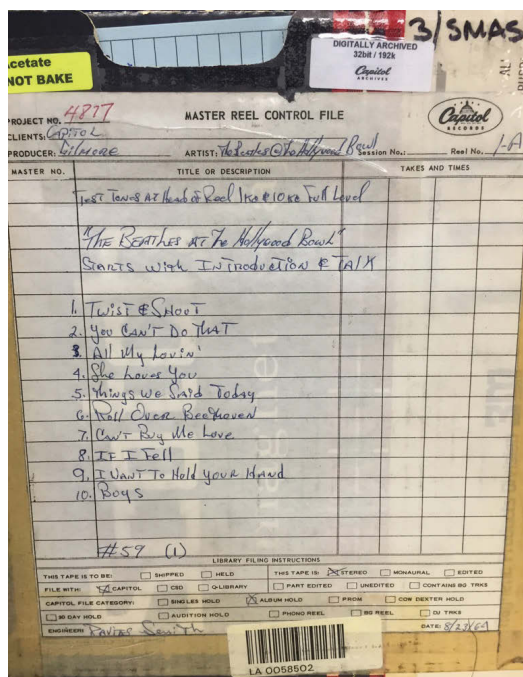 3/SMAS
Acetate
NOT BAKE
DIGITALLY ARCHIVED
32bit / 192k
Capitol
ARCHIVES
PROJECT NO. 4877
MASTER REEL CONTROL FILE
Capitol
RECORDS
CLIENTS: CAPITOL
PRODUCER: Gilmore ARTIST: The Beatles @ The Hollywood Bowl Session No.: Reel No. 1-A
MASTER NO. TITLE OR DESCRIPTION TAKES AND TIMES
Test Tones at Head of Reel 1kc & 10kc Full Level
"The Beatles at The Hollywood Bowl"
Starts with Introduction & Talk
1. Twist & Shout
2. You Can't Do That
3. All My Lovin'
4. She Loves You
5. Things We Said Today
6. Roll Over Beethoven
7. Can't Buy Me Love
8. If I Fell
9. I Want To Hold Your Hand
10. Boys
#59 (1)
LIBRARY FILING INSTRUCTIONS
THIS TAPE IS TO BE: SHIPPED HELD THIS TAPE IS: STEREO MONAURAL EDITED
FILE WITH: CAPITOL CSD O-LIBRARY PART EDITED UNEDITED CONTAINS BG TRKS
CAPITOL FILE CATEGORY: SINGLES HOLD ALBUM HOLD PROM COW DEXTER HOLD
90 DAY HOLD AUDITION HOLD PHONO REEL BG REEL DJ TRKS
ENGINEER: DATE: 8/23/64
LA 0058502